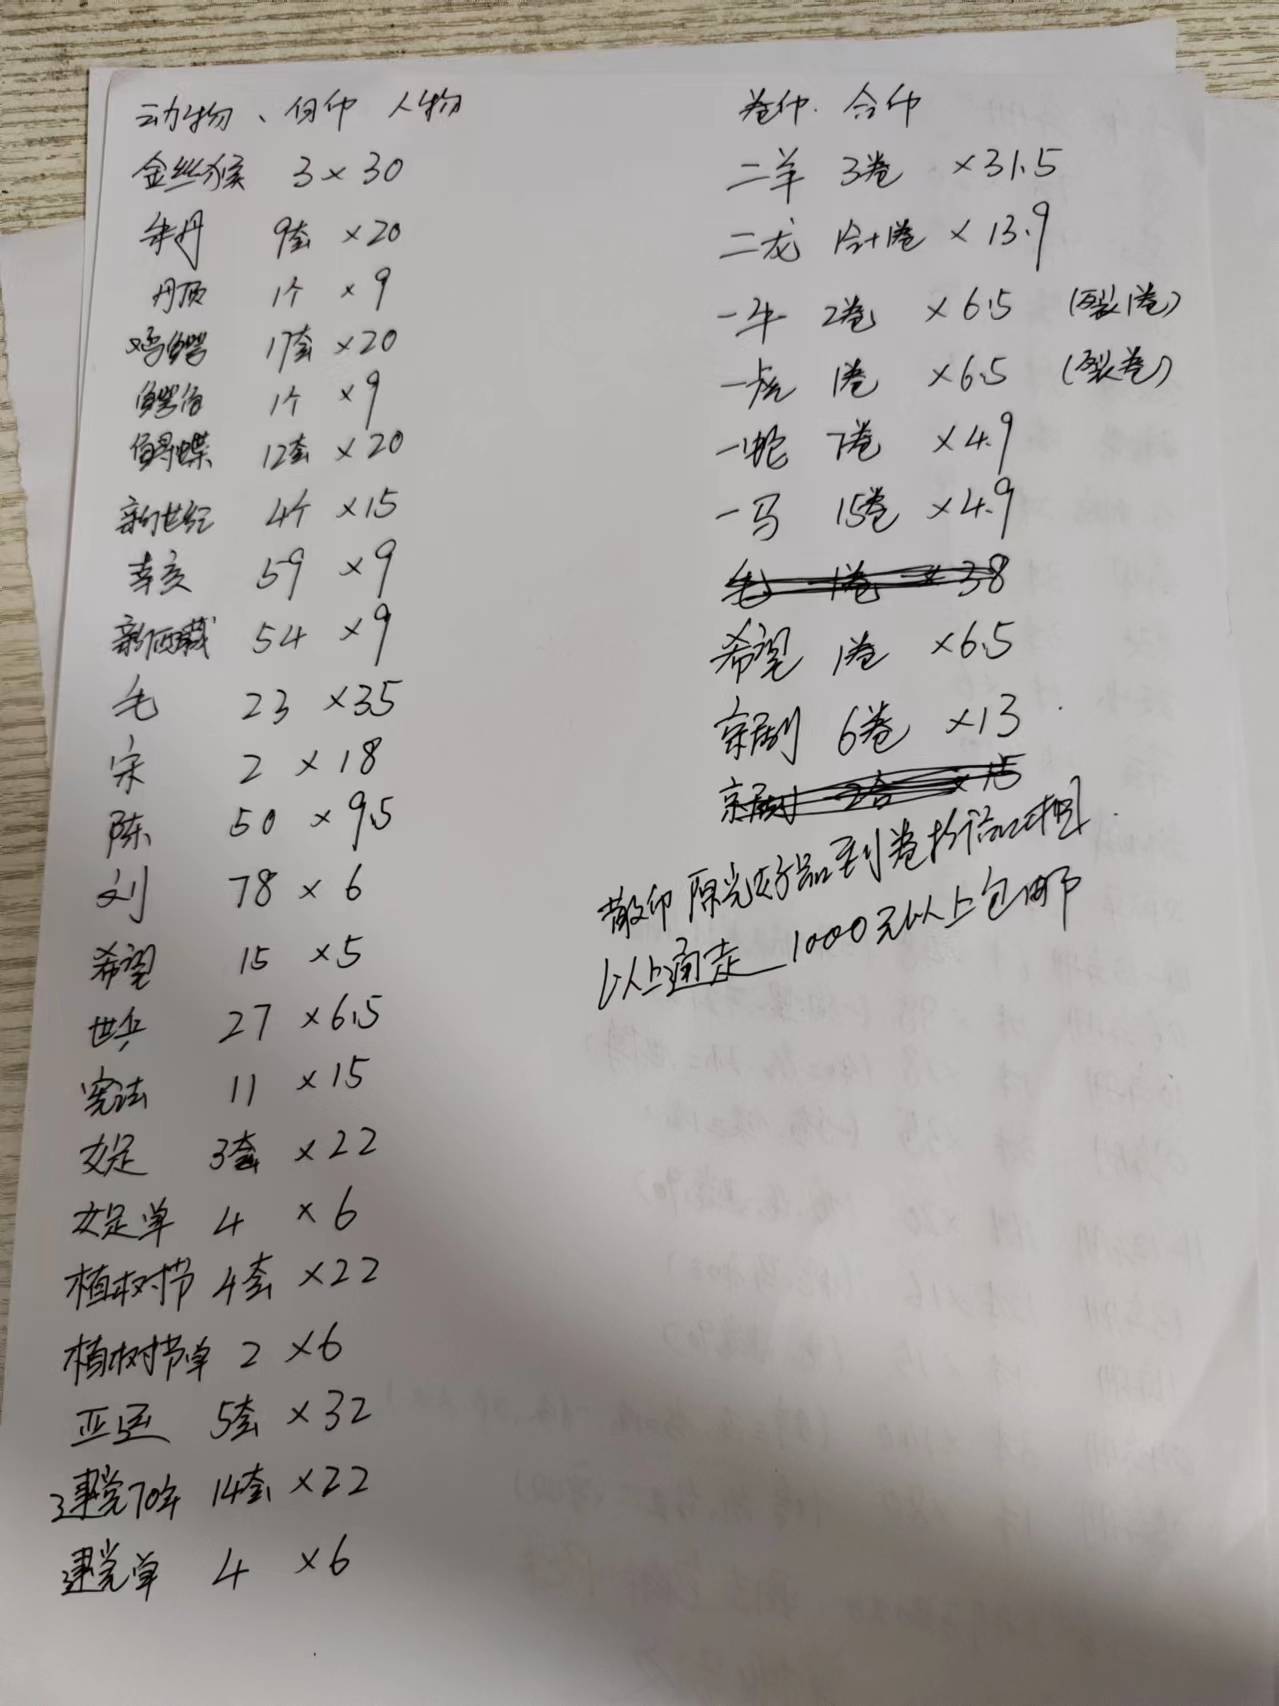 动物、伯仲 人物
金丝猴 3×30
牡丹 9套×20
丹顶 1个×9
鸡鳄 17套×20
1个×9
鲟蝶 12套×20
新世纪 4个×15
辛亥 59×9
新西藏 54×9
毛 23×35
宋 2×18
陈 50×9.5
刘 78×6
希望 15×5
世乒 27×6.5
宪法 11×15
女足 3套×22
女足单 4×6
植树节 4套×22
植树节单 2×6
亚运 5套×32
建党70年 14套×22
建党单 4×6
卷仲、合仲
二羊 3卷×31.5
二龙 1合+1卷×13.9
一牛 2卷×6.5 (裂1卷)
一虎 1卷×6.5 (裂卷)
一蛇 7卷×4.9
一马 15卷×4.9
毛 1卷×38
希望 1卷×6.5
京剧 6卷×13
京剧 2合×15
散仲原光好品到卷拆
以上通走 1000元以上包邮